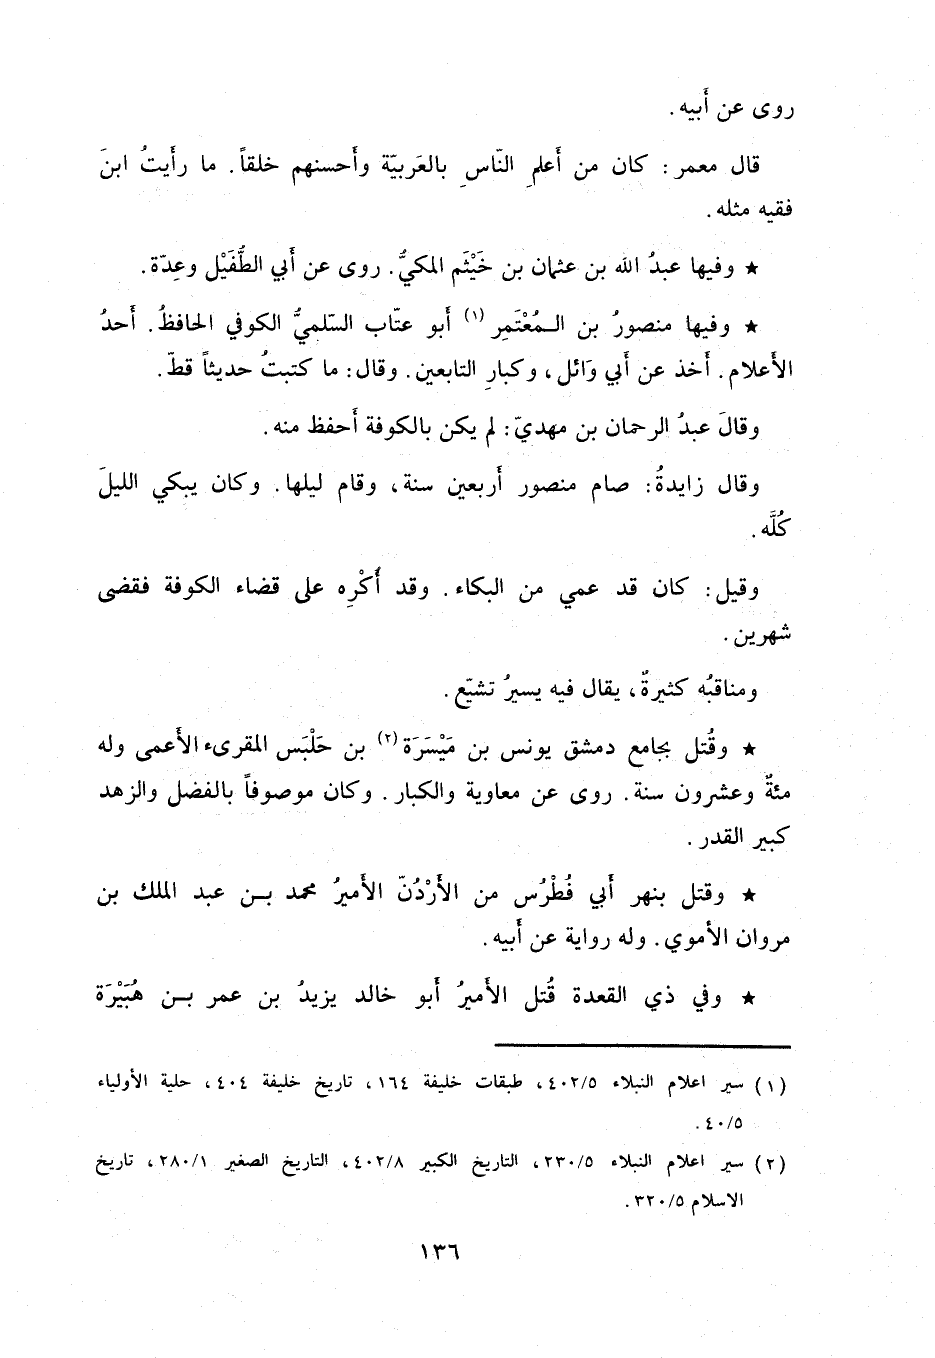 روى عن أَبيه .
قال معمر : كان من أَعلمِ النّاسِ بالعَربيّة وأَحسنهم خلقاً . ما رأَيتُ ابنَ
فقيه مثله .
★ وفيها عبدُ الله بن عثمان بن خَيْثَم المكيُّ . روى عن أَبي الطُّفَيْل وعِدّة .
★ وفيها منصورُ بن الـمُعْتَمِر (١) أَبو عتّاب السّلميُّ الكوفي الحافظُ . أَحدُ
الأَعلام . أَخذ عن أَبي وَائل ، وكبارِ التابعين . وقال : ما كتبتُ حديثاً قطّ .
وقالَ عبدُ الرحمان بن مهديّ : لم يكن بالكوفة أَحفظ منه .
وقال زايدةُ : صام منصور أَربعين سنة ، وقام ليلها . وكان يبكي الليلَ
كُلَّه .
وقيل : كان قد عمي من البكاء . وقد أُكْرِه على قضاء الكوفة فقضى
شهرين .
ومناقبُه كثيرةٌ ، يقال فيه يسيرُ تشيّع .
★ وقُتل بجامع دمشق يونس بن مَيْسَرَة (٢) بن حَلْبَس المقرىء الأَعمى وله
مئةٌ وعشرون سنة . روى عن معاوية والكبار . وكان موصوفاً بالفضل والزهد
كبير القدر .
★ وقتل بنهر أَبي فُطْرُس من الأَرْدُنّ الأَميرُ محمد بـن عبد الملك بن
مروان الأموي . وله رواية عن أَبيه .
★ وفي ذي القعدة قُتل الأَميرُ أَبو خالد يزيدُ بن عمر بـن هُبَيْرَة
(١) سير اعلام النبلاء ٤٠٢/٥ ، طبقات خليفة ١٦٤ ، تاريخ خليفة ٤٠٤ ، حلية الأولياء
٤٠/٥ .
(٢) سير اعلام النبلاء ٢٣٠/٥ ، التاريخ الكبير ٤٠٢/٨ ، التاريخ الصغير ٢٨٠/١ ، تاريخ
الاسلام ٣٢٠/٥ .
١٣٦